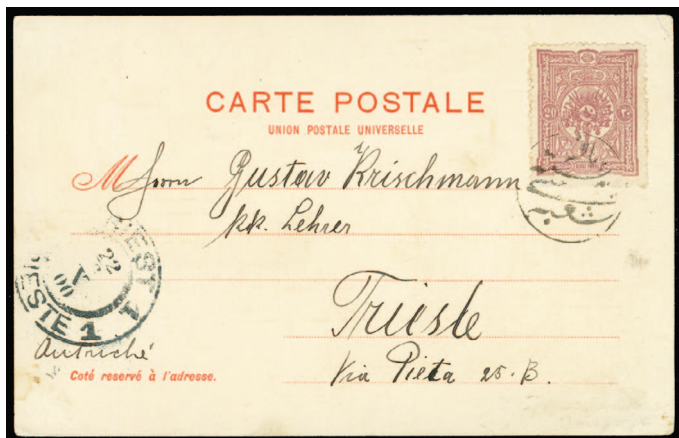 CARTE POSTALE
UNION POSTALE UNIVERSELLE
20
M Herrn Gustav Krischmann
kk. Lehrer
TRIEST 1
22
V
00
TRIESTE 1
Trieste
Autriche
Via Pietà 25. B.
Coté reservé à l'adresse.